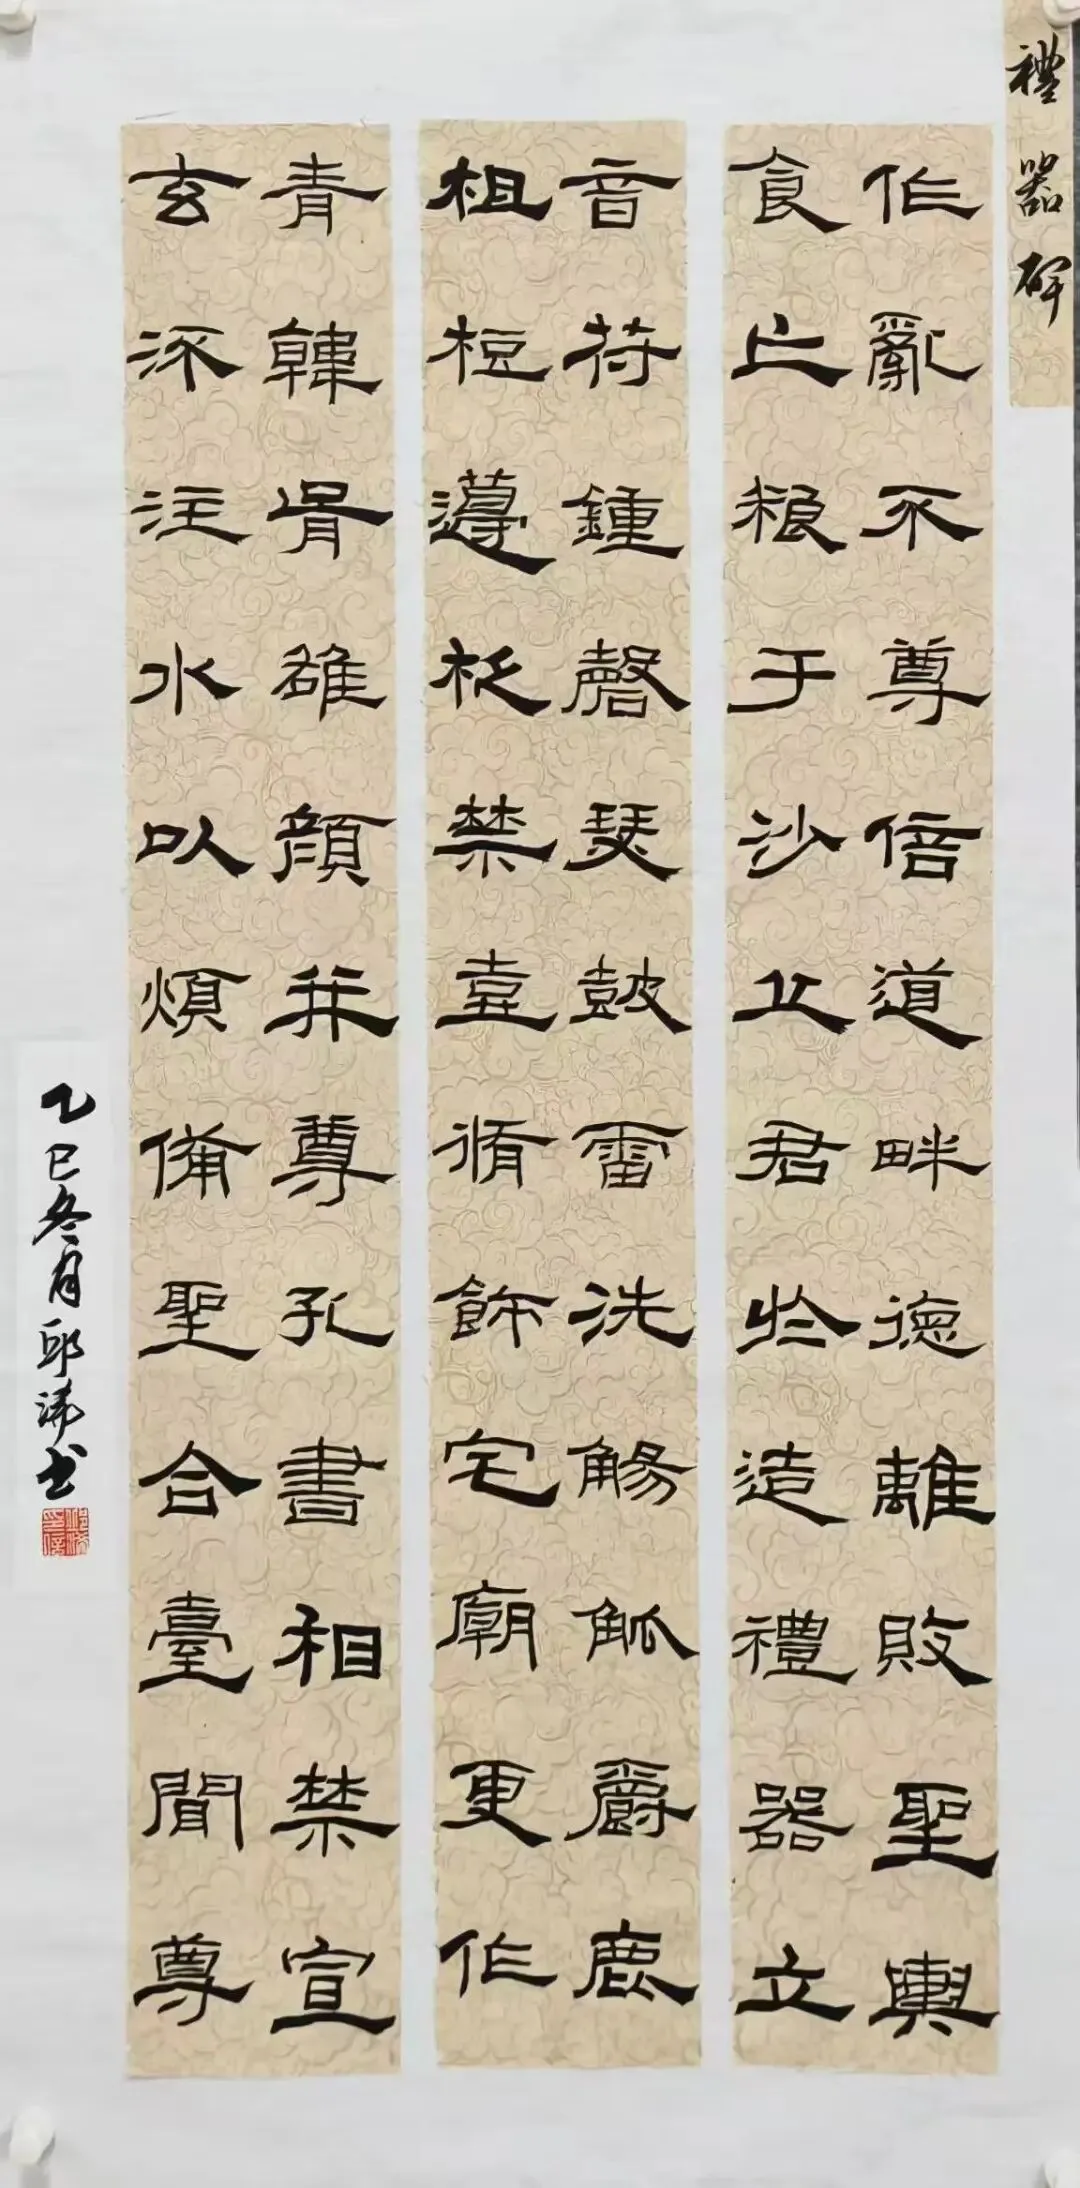 禮器碑
作亂不尊倍道畔德離敗聖輿
食亡粮于沙丘君於造禮器立
音苻鍾磬瑟鼓雷洗觴觚爵鹿
柤梪籩柉禁壺脩飾宅廟更作
青韓胥雒顏并尊孔書相禁宣
玄汙注水以煩備聖合臺聞尊
乙巳冬月邱书